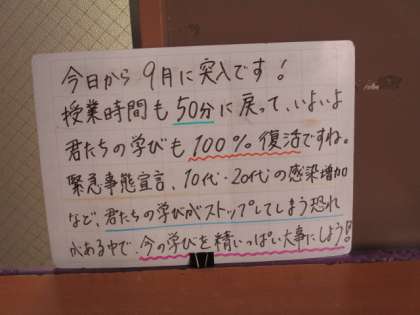 今日から9月に突入です!
授業時間も50分に戻って、いよいよ
君たちの学びも100%復活ですね。
緊急事態宣言、10代・20代の感染増加
など、君たちの学びがストップしてしまう恐れ
がある中で、今の学びを精いっぱい大事にしよう!